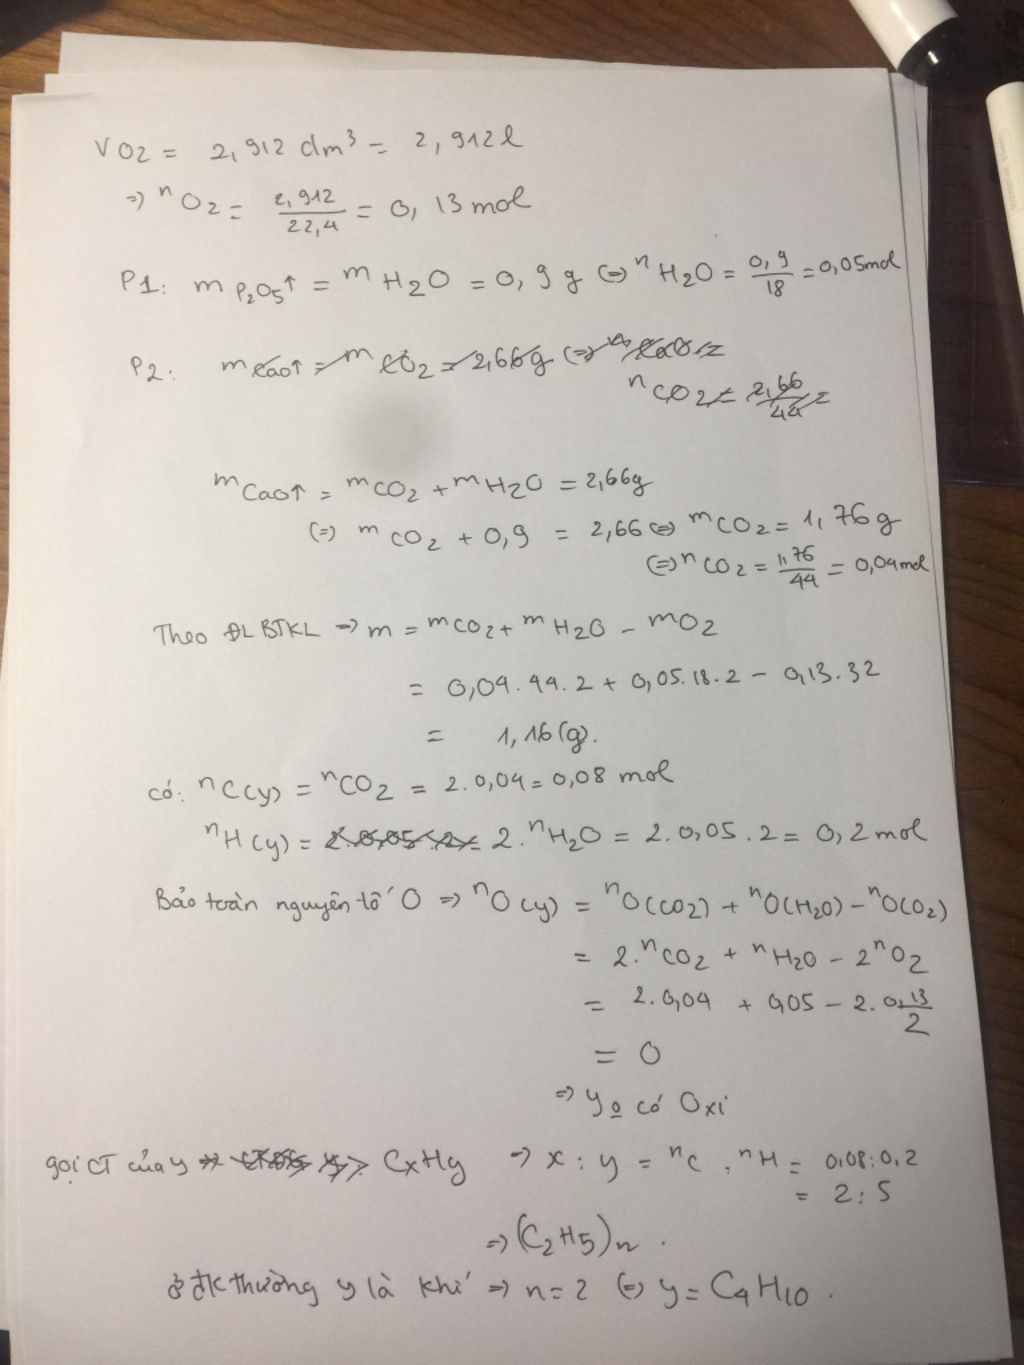 VO2 = 2,912 dm³ = 2,912 l
=> nO2 = 2,912/22,4 = 0,13 mol
P1: mP2O5↑ = mH2O = 0,9 g <=> nH2O = 0,9/18 = 0,05mol
P2: mCaO↑ = mCO2 = 2,66g <=>
nCO2 = 2,66/44 =
mCaO↑ = mCO2 + mH2O = 2,66g
(=) mCO2 + 0,9 = 2,66 (=) mCO2 = 1,76 g
(=) nCO2 = 1,76/44 = 0,04mol
Theo ĐL BTKL => m = mCO2 + mH2O - mO2
= 0,04.44.2 + 0,05.18.2 - 0,13.32
= 1,16(g).
có: nC(y) = nCO2 = 2.0,04 = 0,08 mol
nH(y) = 2.0,05.2 = 2.nH2O = 2.0,05.2 = 0,2 mol
Bảo toàn nguyên tố O => nO(y) = nO(CO2) + nO(H2O) - nO(O2)
= 2.nCO2 + nH2O - 2nO2
= 2.0,04 + 0,05 - 2.0,13/2
= 0
=> y o có Oxi
gọi CT của y CxHy => x : y = nC : nH = 0,08:0,2
= 2:5
=> (C2H5)n.
ở đk thường y là khí => n=2 (=) y = C4H10.